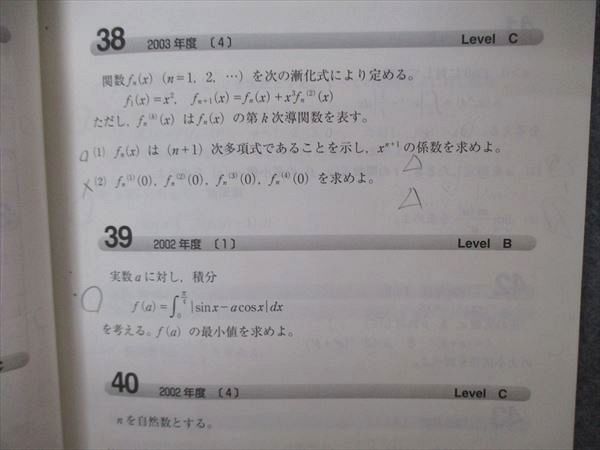 38 2003年度 〔4〕 Level C
関数fₙ(x) (n=1, 2, …) を次の漸化式により定める。
f₁(x)=x², fₙ₊₁(x)=fₙ(x)+x³fₙ⁽²⁾(x)
ただし, fₙ⁽ᵏ⁾(x) はfₙ(x) の第k次導関数を表す。
(1) fₙ(x) は (n+1) 次多項式であることを示し, xⁿ⁺¹の係数を求めよ。
(2) fₙ⁽¹⁾(0), fₙ⁽²⁾(0), fₙ⁽³⁾(0), fₙ⁽⁴⁾(0) を求めよ。
39 2002年度 〔1〕 Level B
実数aに対し, 積分
f(a)=∫₀^(π/4)|sinx−acosx|dx
を考える。f(a) の最小値を求めよ。
40 2002年度 〔4〕 Level C
nを自然数とする。